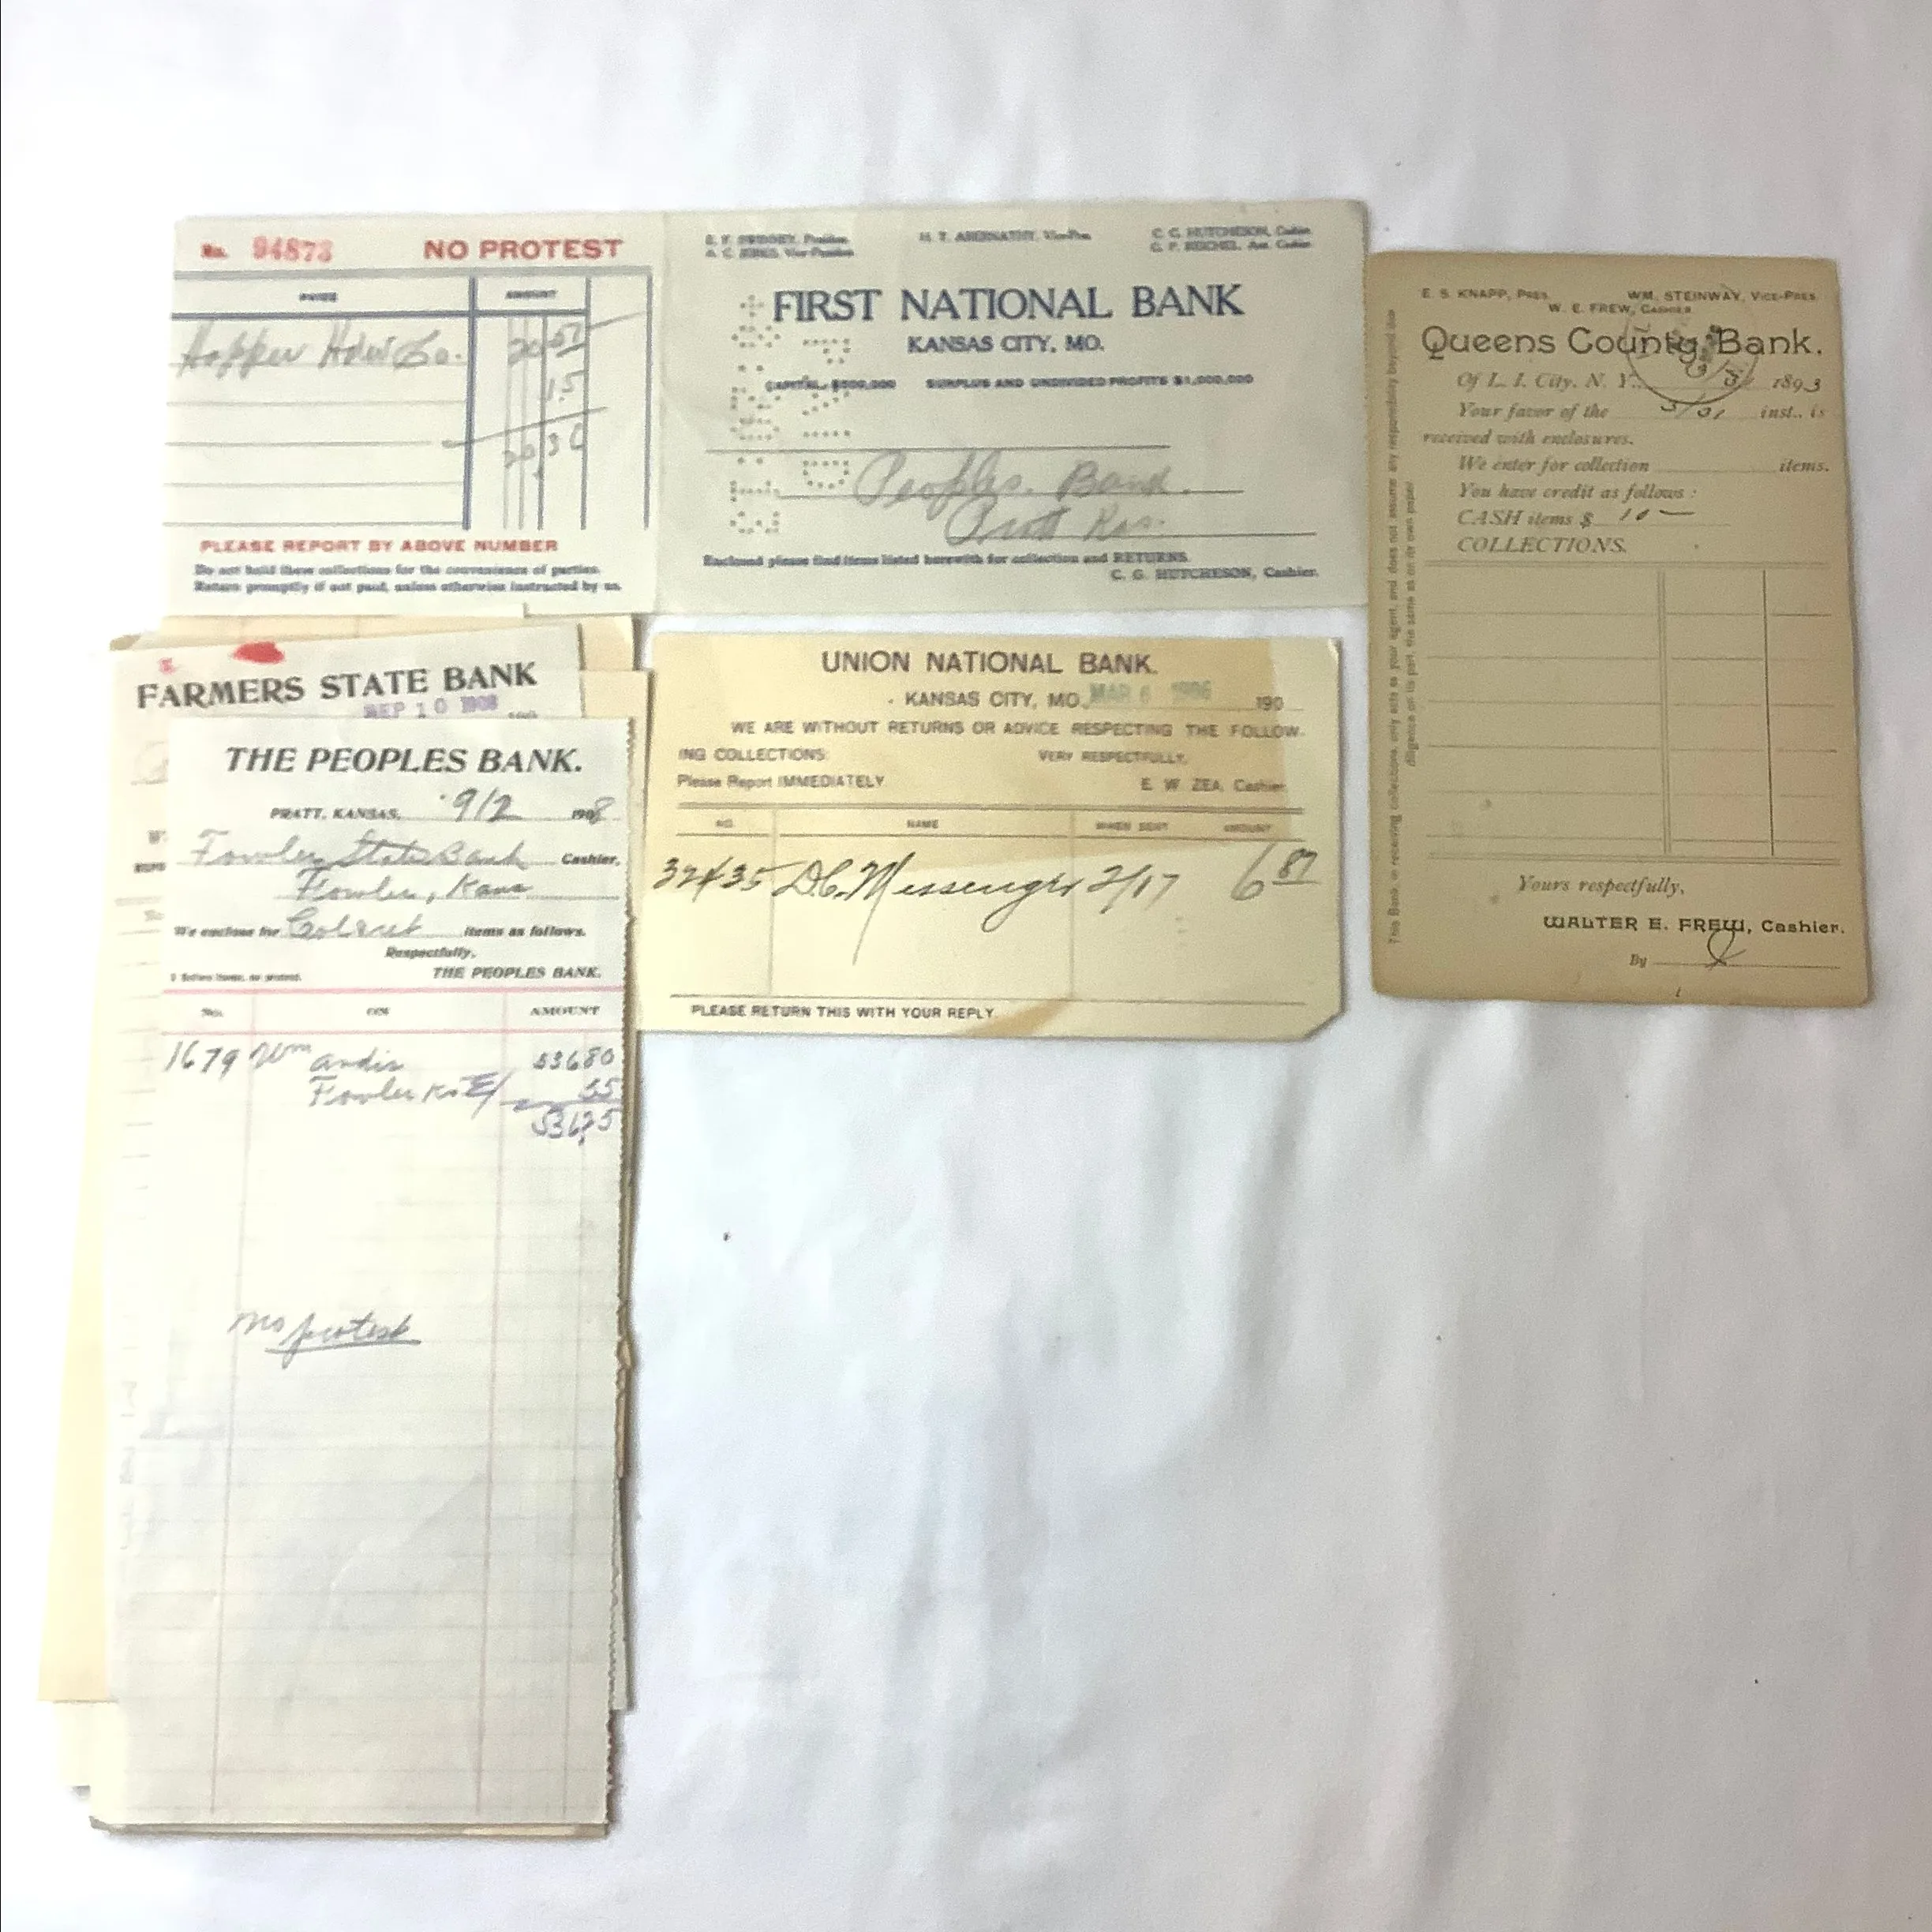 No. 94873 NO PROTEST
PAYER AMOUNT
Hopper Hdw Co. 20 51
15
20 36
PLEASE REPORT BY ABOVE NUMBER
Do not hold these collections for the convenience of parties.
Return promptly if not paid, unless otherwise instructed by us.
President. H. T. ABERNATHY, Vice-Pres. C. G. HUTCHESON, Cashier
Vice-President C. P. REICHEL, Asst. Cashier
FIRST NATIONAL BANK
KANSAS CITY, MO.
CAPITAL, $500,000 SURPLUS AND UNDIVIDED PROFITS $1,000,000
Peoples. Bank.
Pratt Kas.
Enclosed please find items listed herewith for collection and RETURNS.
C. G. HUTCHESON, Cashier.
E. S. KNAPP, PRES. WM. STEINWAY, VICE-PRES.
W. E. FREW, CASHIER
Queens County Bank.
Of L. I. City, N. Y. 1893
Your favor of the inst., is
received with enclosures.
We enter for collection items.
You have credit as follows:
CASH items $ 10 —
COLLECTIONS.
Yours respectfully,
WALTER E. FREW, Cashier.
By
This Bank, in receiving collections, only acts as your agent, and does not assume any responsibility beyond due
diligence on its part, the same as on its own paper
FARMERS STATE BANK
SEP 10 1908
THE PEOPLES BANK.
PRATT, KANSAS, 9/2 1908
Fowler State Bank Cashier,
Fowler, Kans
We enclose for Col & ret items as follows.
Respectfully,
THE PEOPLES BANK.
No. ON AMOUNT
1679 Wm Andis 53680
Fowler Ks E/ 55
53625
no protest
UNION NATIONAL BANK.
KANSAS CITY, MO. MAR 6 1906 190
WE ARE WITHOUT RETURNS OR ADVICE RESPECTING THE FOLLOW-
ING COLLECTIONS: VERY RESPECTFULLY,
Please Report IMMEDIATELY E. W. ZEA, Cashier
NO. NAME WHEN SENT AMOUNT
32435 D.C. Messenger 2/17 6 87
PLEASE RETURN THIS WITH YOUR REPLY